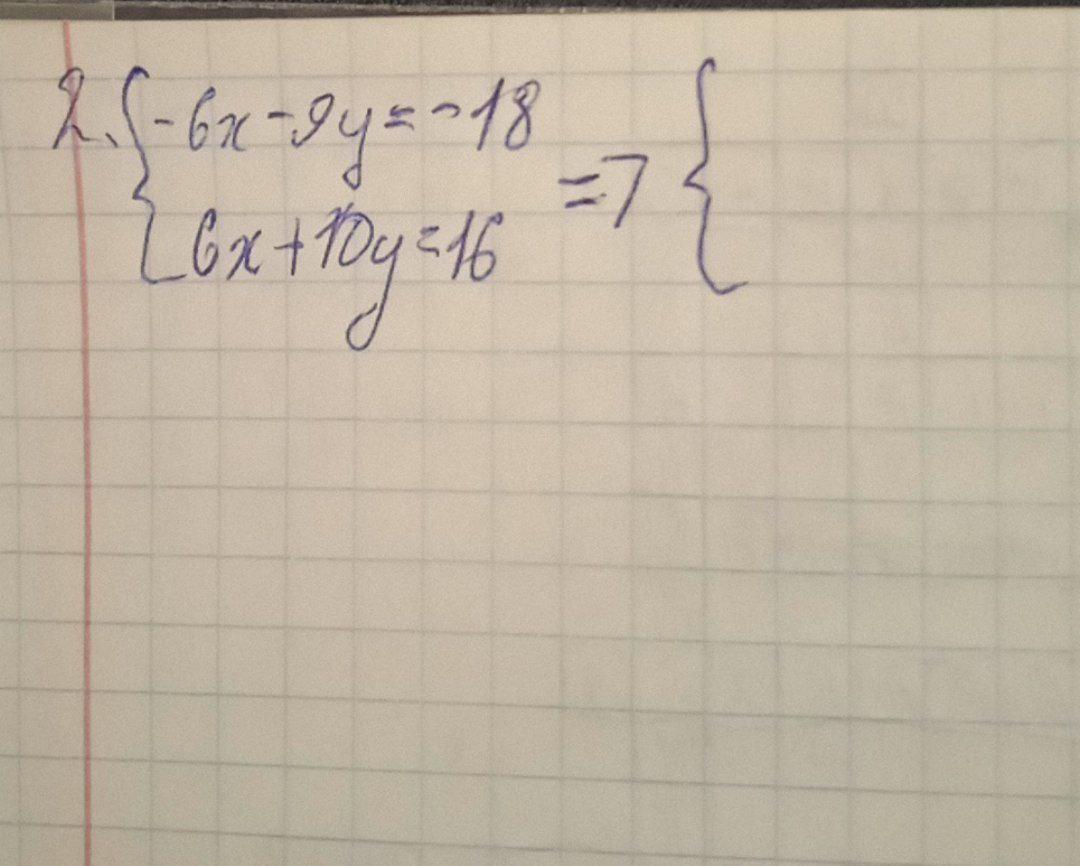 2. { -6x - 9y = -18
6x + 10y = 16 => {